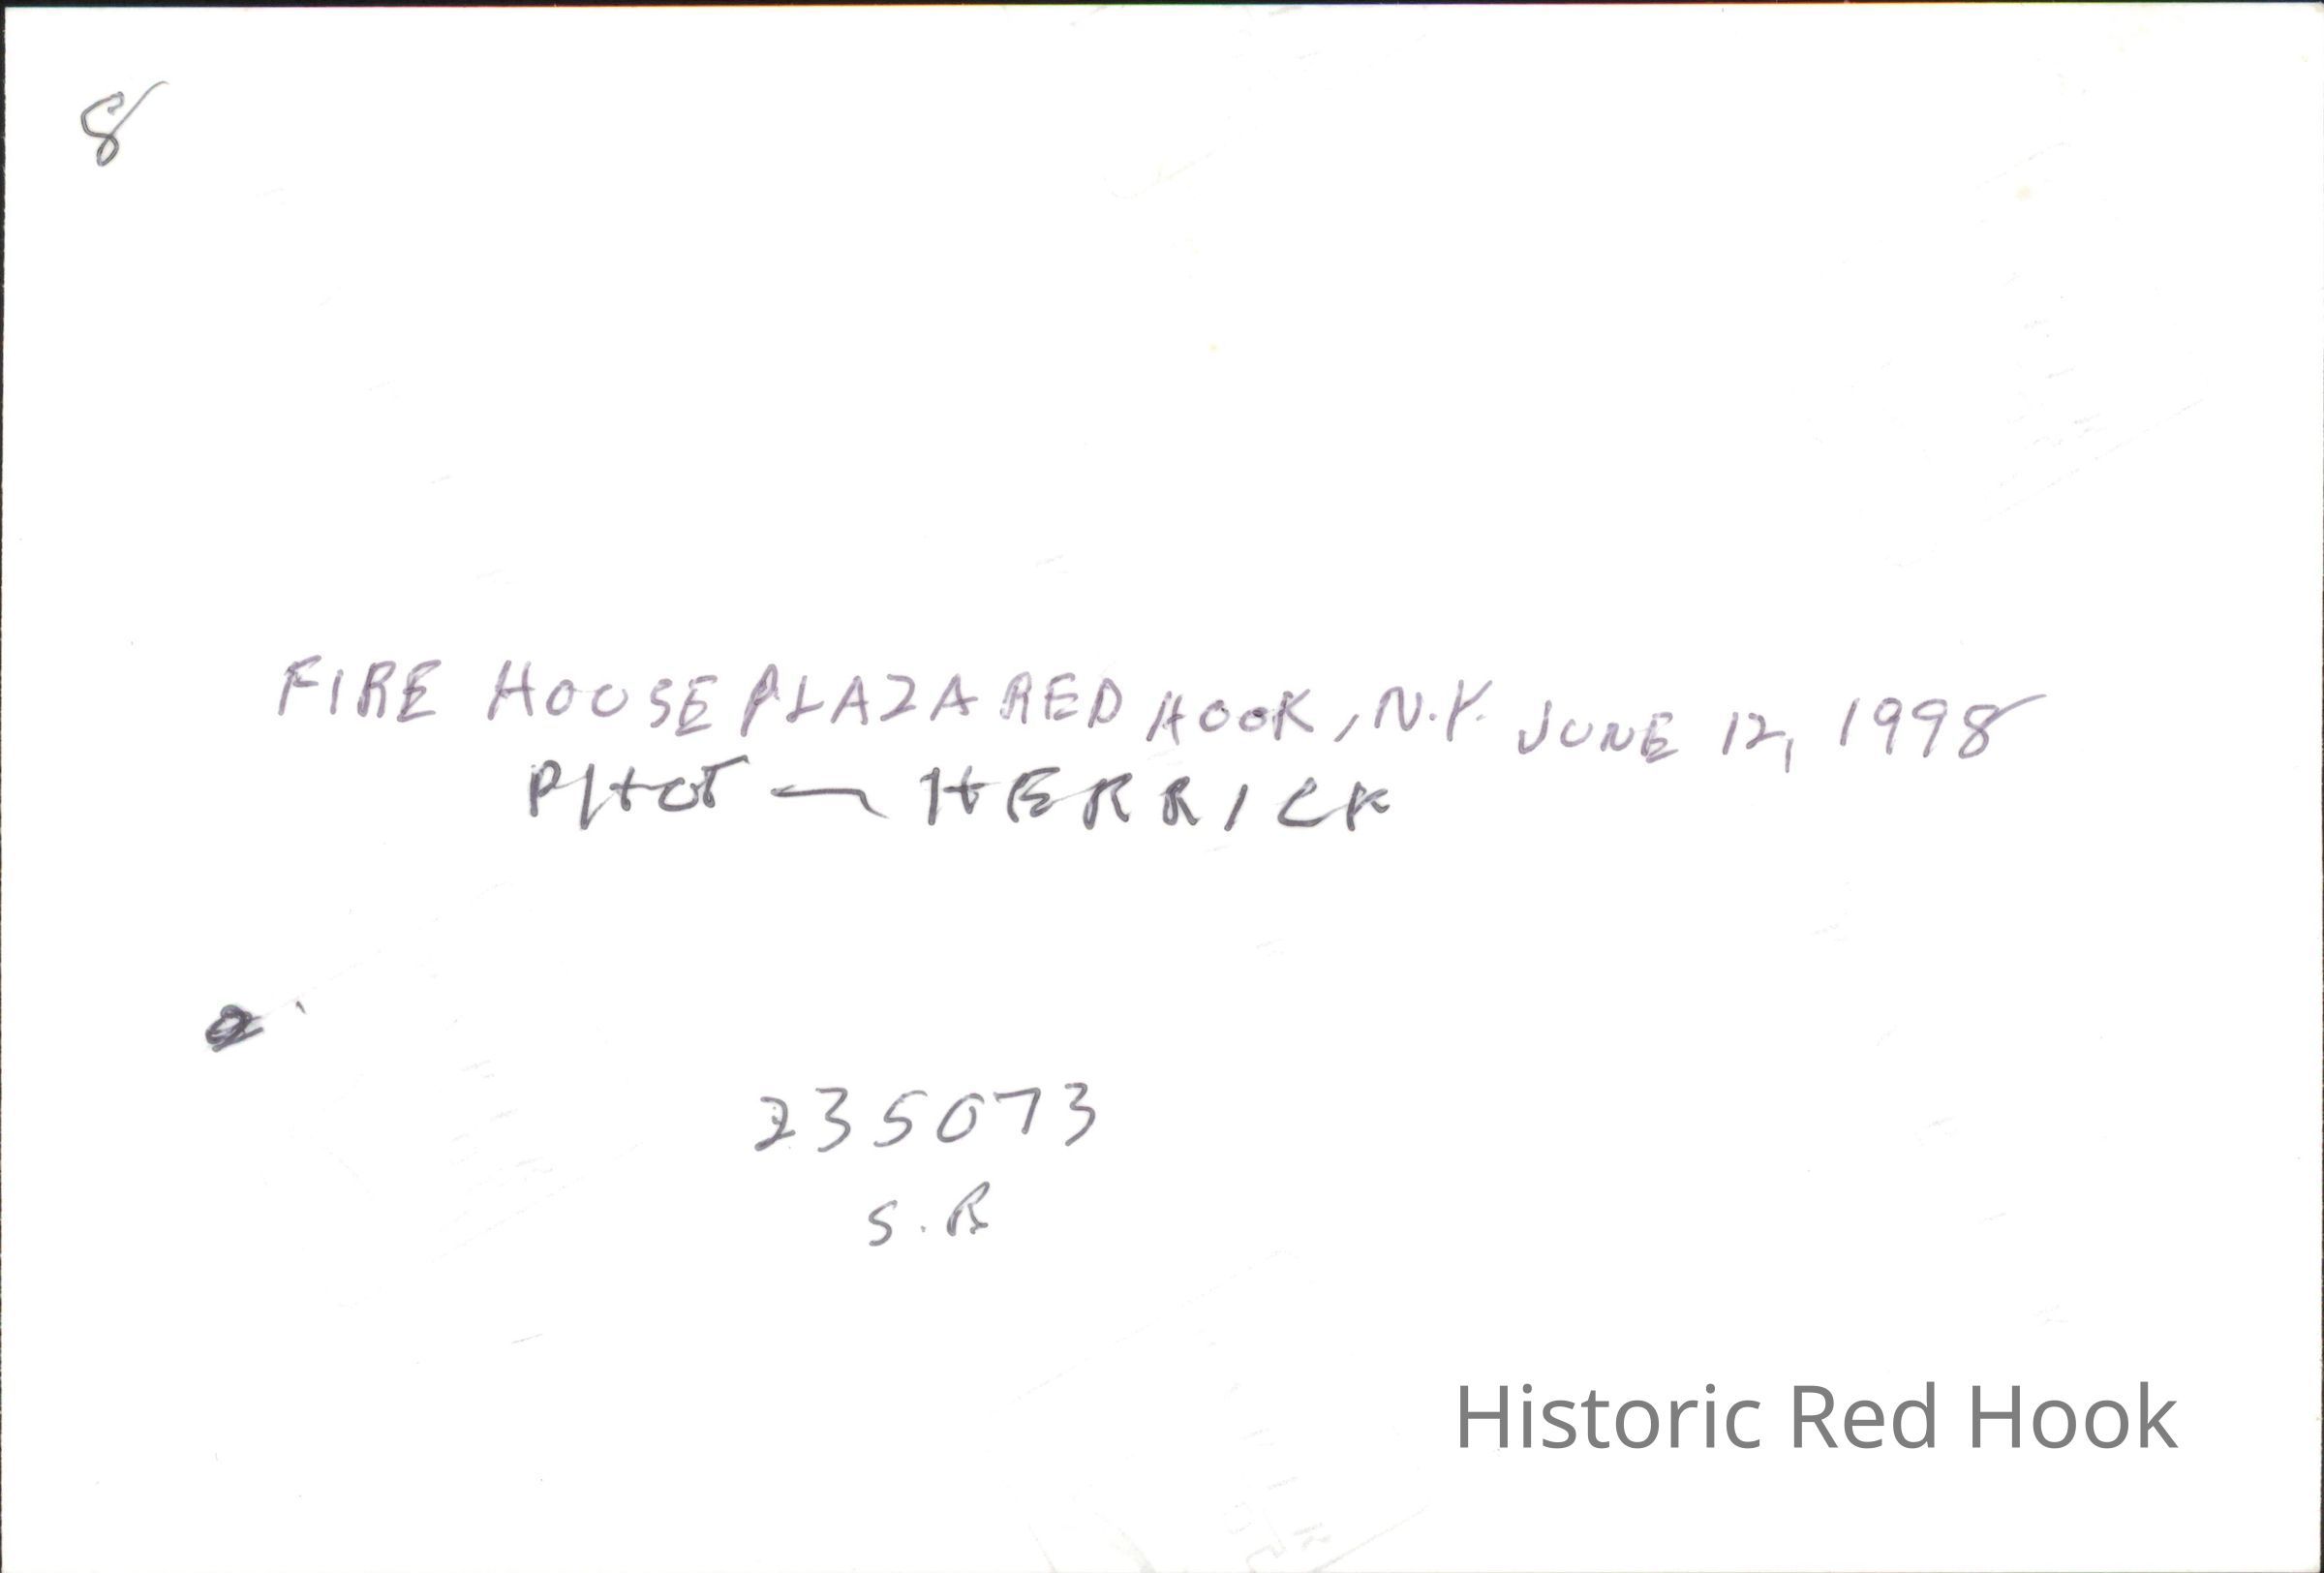 8
FIRE HOUSE PLAZA RED HOOK, N.Y. JUNE 12, 1998
HERRICK
235073
S.R
Historic Red Hook